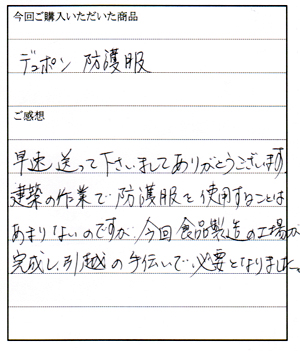 今回ご購入いただいた商品
デュポン 防護服
ご感想
早速送って下さいましてありがとうございます。
建築の作業で防護服を使用することは
あまりないのですが、今回食品製造の工場が
完成し、引越の手伝いで必要となりました。